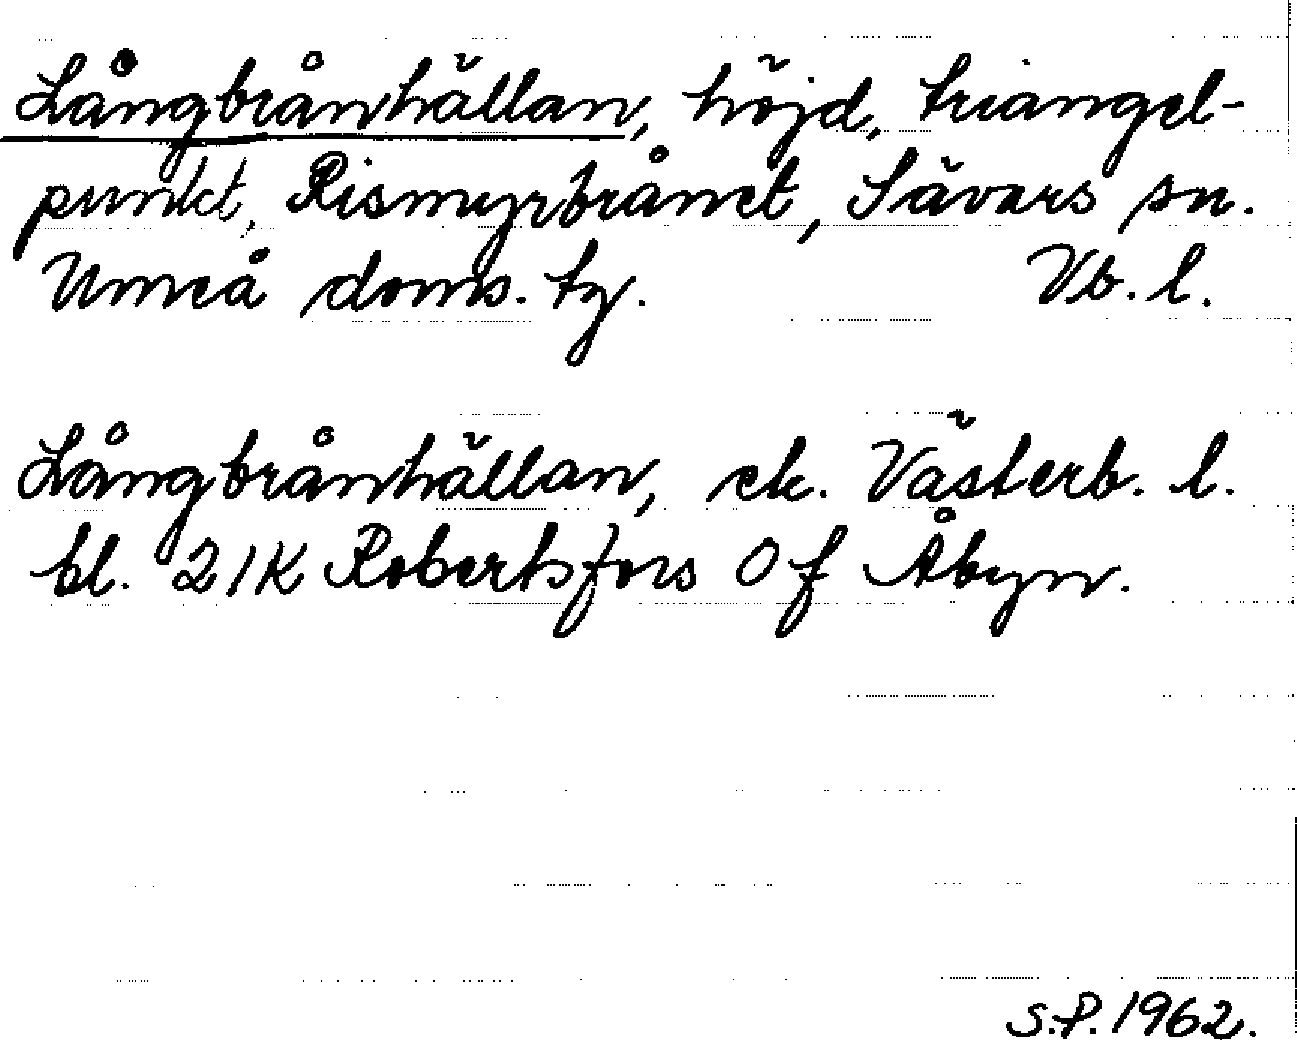 Långbrånhällan, höjd, triangel-
punkt, Rismyrbrånet, Sävars sn.
Umeå doms. tg. Vb. l.
Långbrånhällan, ek. Västerb. l.
bl. 21K Robertsfors 0 f Åbyn.
S.P. 1962.